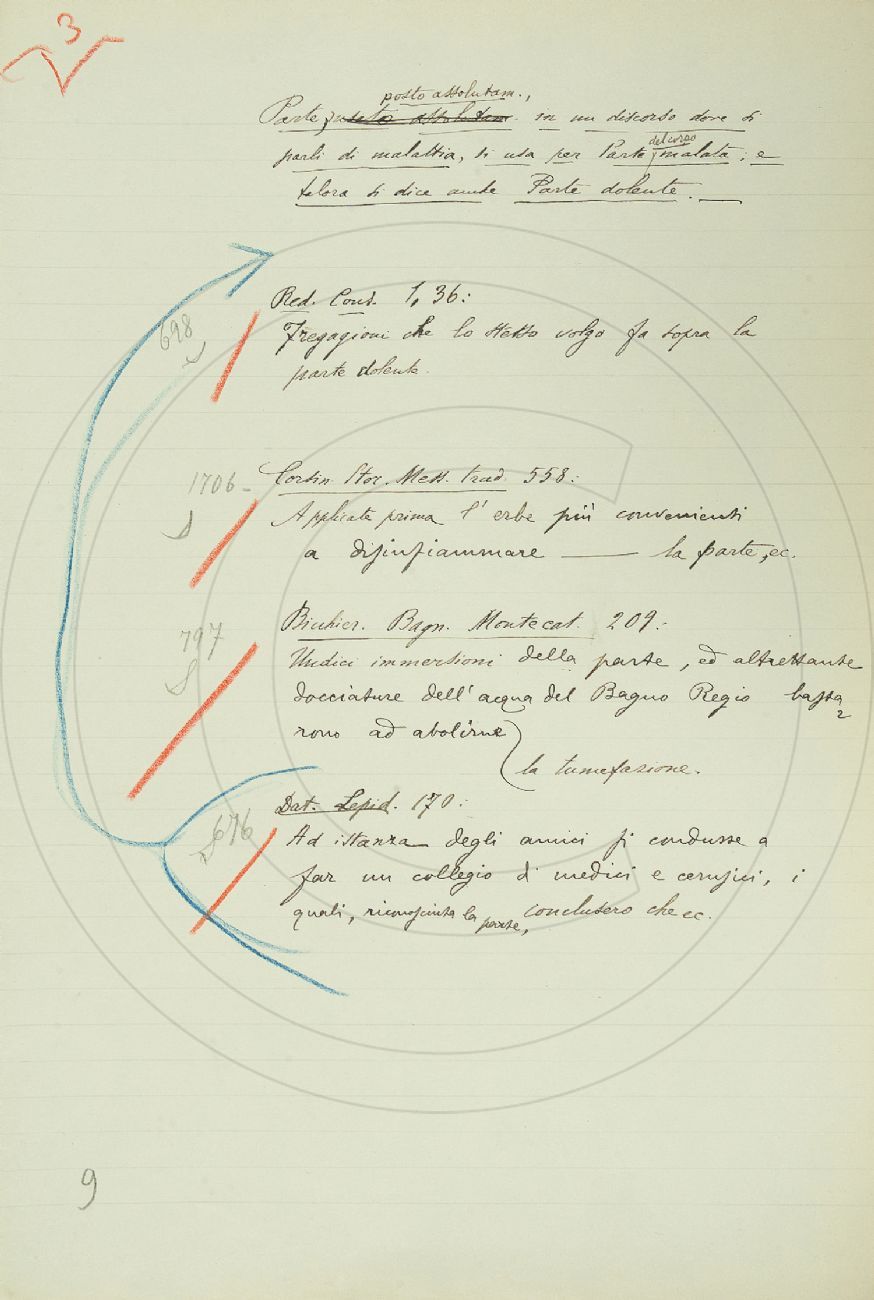 3
posto assolutam.,
Parte, usato assolutam. in un discorso dove si
del corpo
parli di malattia, si usa per Parte malata; e
talora si dice anche Parte dolente.
Red. Cons. 1, 36:
698
Fregagioni che lo stesso volgo fa sopra la
parte dolente.
1706 Cortin. Stor. Mess. trad. 558:
Applicate prima l'erbe più convenienti
a disinfiammare — la parte, ec.
Bicchier. Bagn. Montecat. 209:
797
Undici immersioni della parte, ed altrettante
docciature dell'acqua del Bagno Regio basta
rono ad abolirne
la tumefazione.
Dat. Lepid. 170:
676
Ad istanza degli amici si condusse a
far un collegio di medici e cerusici, i
quali, riconosciuta la parte, conclusero che ec.
9